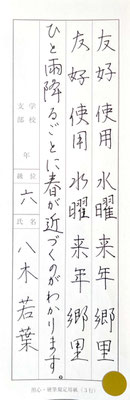 友好使用水曜来年郷里
友好使用水曜来年郷里
ひと雨降るごとに春が近づくのがわかります。
学校
支部
年
級位
六
氏名
八木若葉